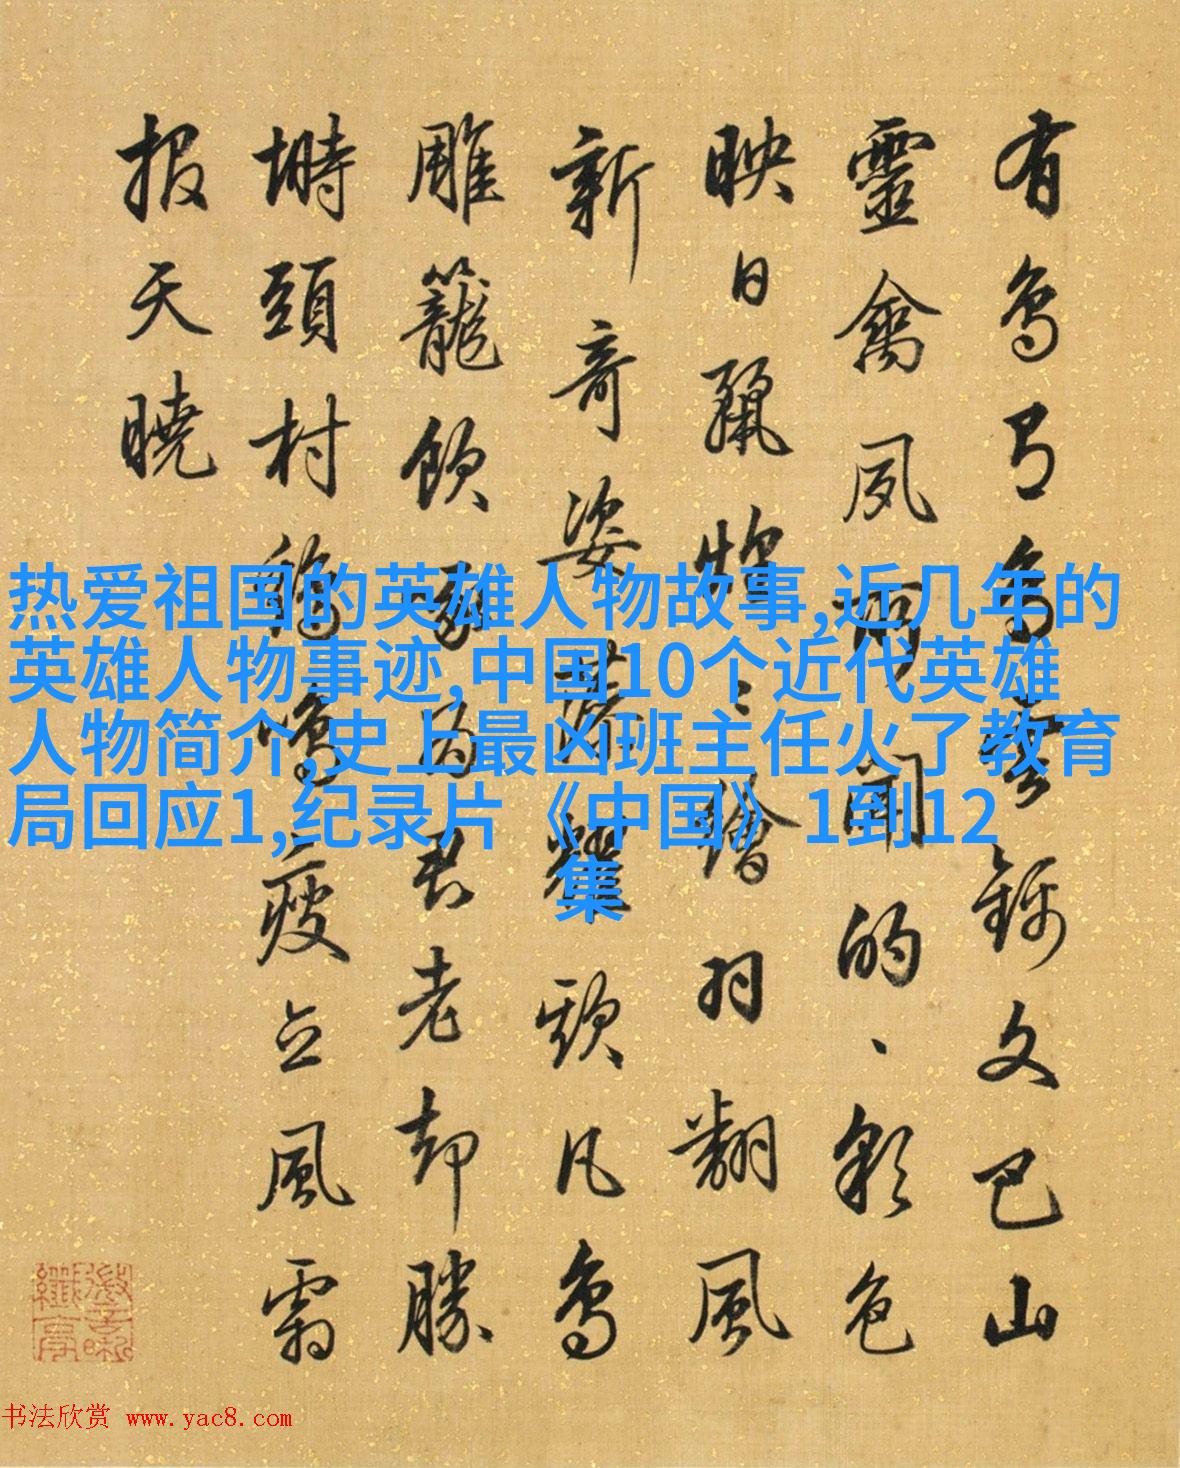 热爱祖国的英雄人物故事,近几年的
英雄人物事迹,中国10个近代英雄
人物简介,史上最凶班主任火了教育
局回应1,纪录片《中国》1到12
集
有鳥有鳥錦文巴山
靈禽夙聞的、彩色
映日繪羽翻風
新奇姿耀凡鳥
雕籠飲啄為君老却勝
塒頭村鳴瘦立風霜
报天曉
书法欣赏 www.yac8.com